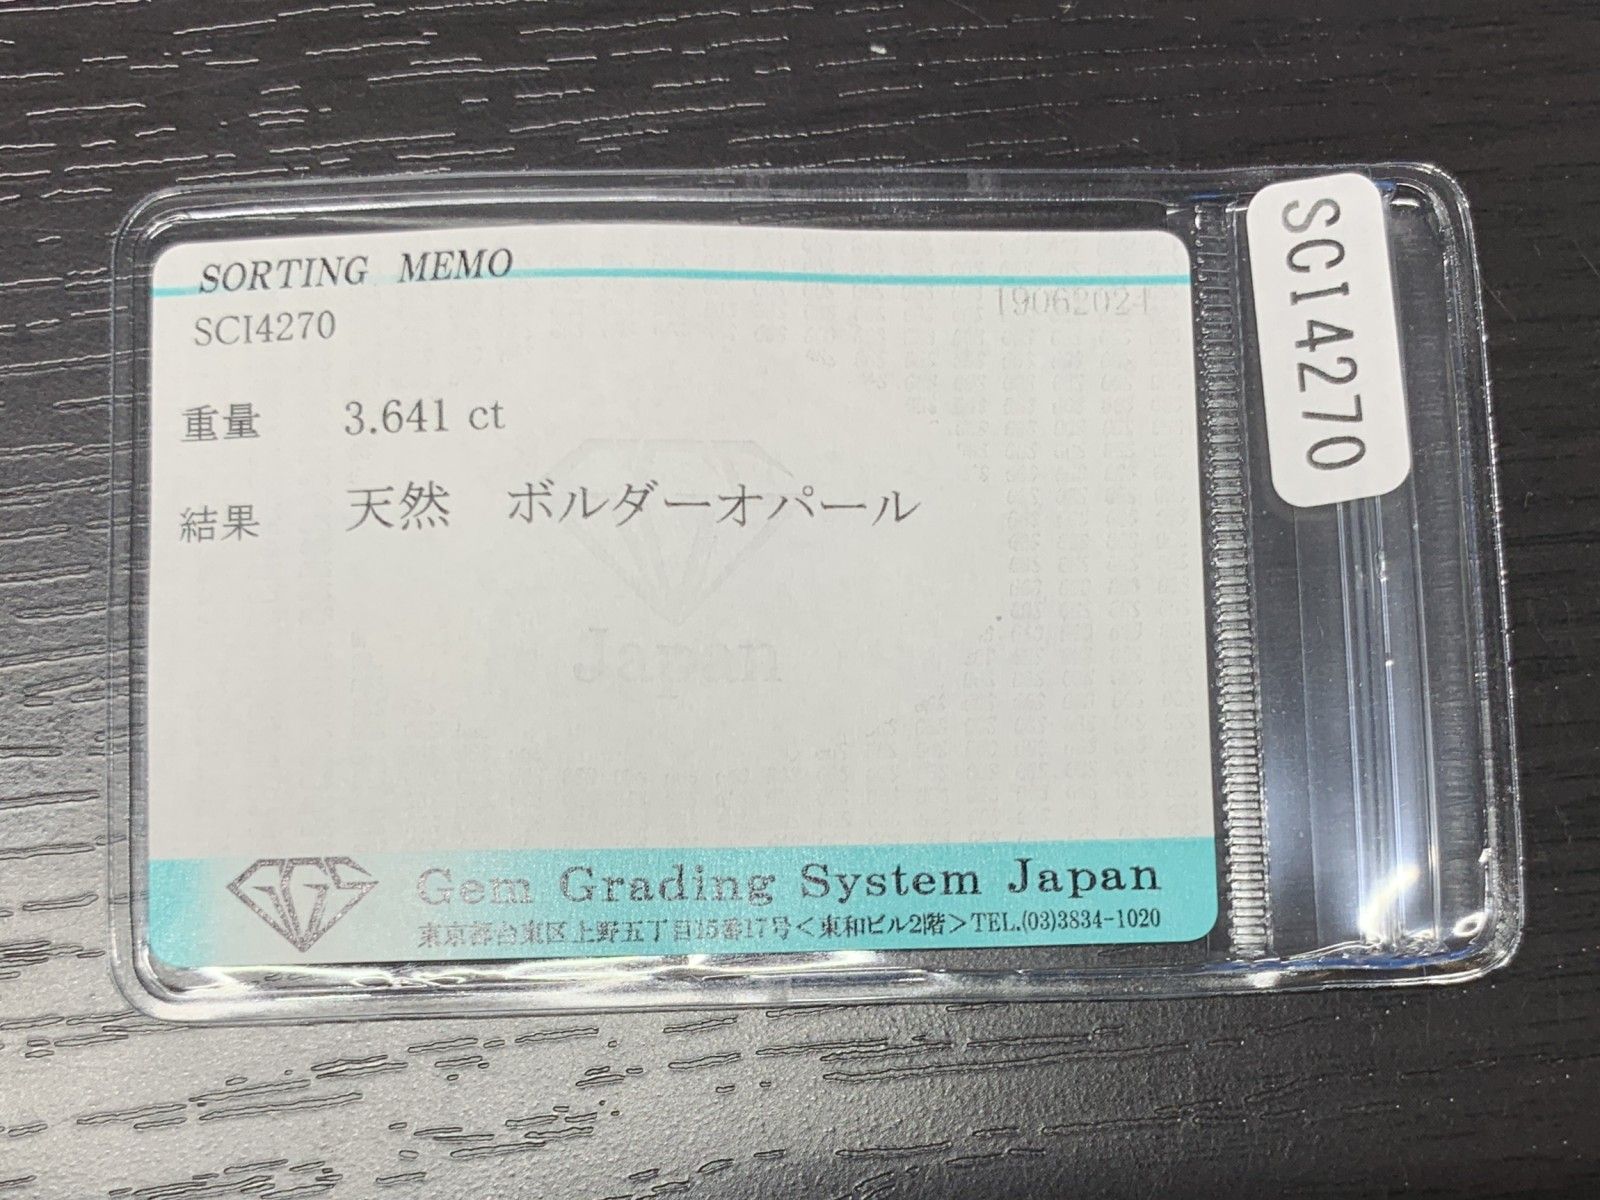 SORTING MEMO
19062024
SCI4270
重量 3.641 ct
結果 天然 ボルダーオパール
Japan
GGS
Gem Grading System Japan
東京都台東区上野五丁目15番17号＜東和ビル2階＞TEL.(03)3834-1020
SCI4270